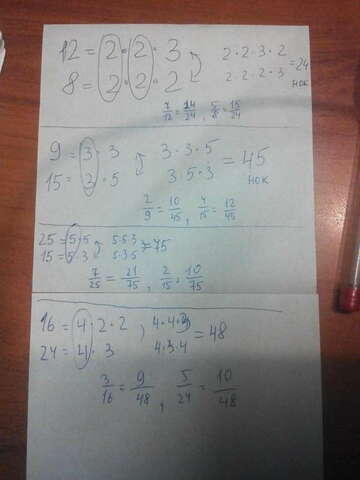 12 = 2 · 2 · 3   2 · 2 · 3 · 2
8 = 2 · 2 · 2   2 · 2 · 2 · 3 = 24
НОК
7/12 = 14/24 , 5/8 = 15/24
9 = 3 · 3   3 · 3 · 5
15 = 3 · 5   3 5 · 3 = 45
НОК
2/9 = 10/45 , 4/15 = 12/45
25 = 5 · 5   5·5·3
15 = 5 · 3   5·3·5 = 75
7/25 = 21/75 , 2/15 = 10/75
16 = 4 · 2 · 2   4 · 4 · 3
24 = 4 · 3   4 · 3 · 4 = 48
3/16 = 9/48 , 5/24 = 10/48